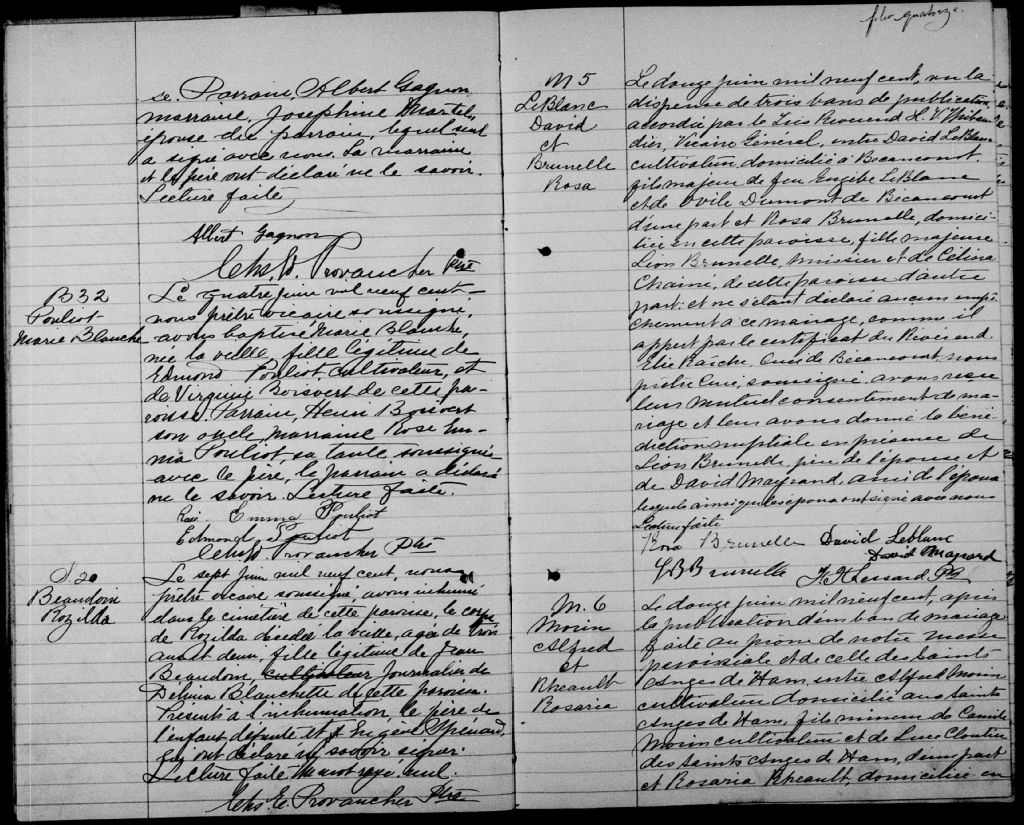 se. Parrain, Albert Gagnon,
marraine, Josephine Martel,
épouse du parrain, lequel seul
a signé avec nous. La marraine
et le père ont déclaré ne le savoir.
Lecture faite,
Albert Gagnon
Chs. E. Provancher Ptre
B 32
Pouliot
Marie Blanche
Le quatre juin mil neuf cent,
nous prêtre vicaire soussigné,
avons baptisé Marie Blanche,
née la veille, fille légitime de
Edmond Pouliot cultivateur, et
de Virginie Boisvert de cette pa-
roisse. Parrain, Henri Boisvert
son oncle, marraine Rose Em-
ma Pouliot sa tante soussignée
avec le père, le parrain a déclaré
ne le savoir. Lecture faite.
Rose Emma Pouliot
Edmond Pouliot
Chs. E. Provancher Ptre
S. 20
Beaudoin
Rozilda
Le sept juin mil neuf cent, nous
prêtre vicaire soussigné, avons inhumé
dans le cimetière de cette paroisse, le corps
de Rozilda décédée la veille, agée de trois
ans et demi, fille légitime de Jean
Beaudoin, cultivateur journalier de
Délima Blanchette de cette paroisse.
Présents à l'inhumation, le père de
l'enfant défunte et Eugène Spénard,
qui ont déclaré ne savoir signer.
Lecture faite un mot rayé, nul.
Chs. E. Provancher Ptre
folio quatorze.
M 5
LeBlanc
David
et
Brunelle
Rosa
Le douze juin mil neuf cent, vu la
dispense de trois bans de publication,
accordée par le Très Révérend H. V. Thibau-
dier, Vicaire Général, entre David LeBlanc
cultivateur domicilié à Bécancourt
fils majeur de feu Eusèbe LeBlanc
et de Ovile Dumont de Bécancourt
d'une part et Rosa Brunelle, domici-
liée en cette paroisse, fille majeure
Léon Brunelle, menuisier et de Célina
de cette paroisse d'autre
part: et ne s'étant déclaré aucun empê-
chement à ce mariage, comme il
appert par le certificat du Révérend
Elie Curé de Bécancourt nous
prêtre Curé, soussigné, avons reçu
leur mutuel consentement de ma-
riage et leur avons donné la béné-
diction nuptiale en présence de
Léon Brunelle père de l'épouse et
de David Mayrand, ami de l'époux
lesquels ainsi que les époux ont signé avec nous
Lecture faite
Rosa Brunelle David Leblanc
David Mayrand
Brunelle H Lessard Ptr
M. 6
Morin
Alfred
et
Rheault
Rosaria
Le douze juin mil neuf cent, après
la publication d'un ban de mariage
faite au prône de notre messe
paroissiale et de celle des Saints
Anges de Ham, entre Alfred Morin
cultivateur domicilié aux Saints
Anges de Ham, fils mineur de Camille
Morin cultivateur et de Luce Cloutier
des Saints Anges de Ham, d'une part
et Rosaria Rheault, domiciliée en